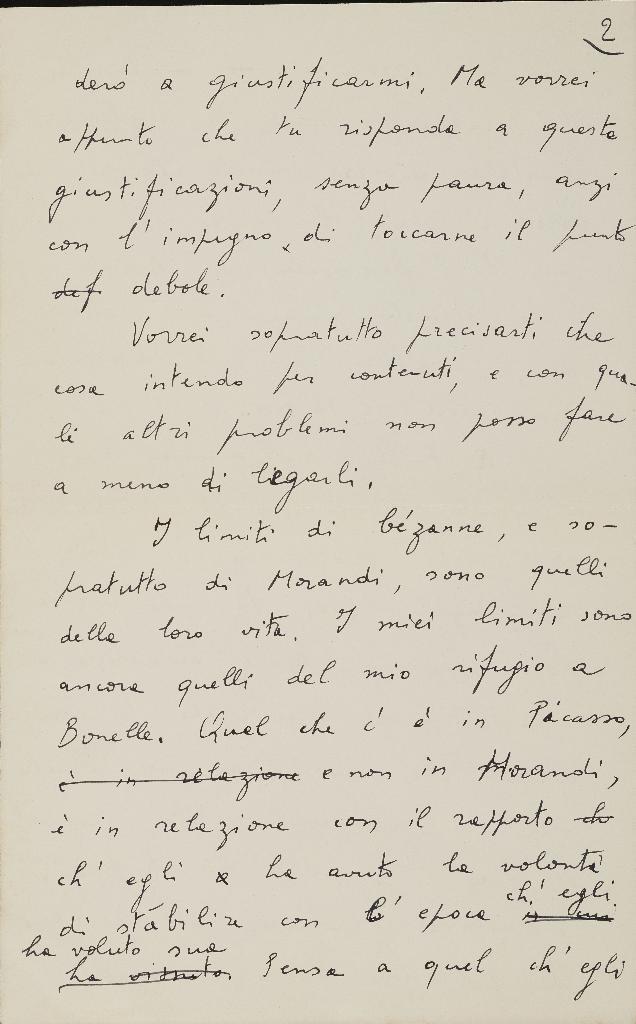 2
derò a giustificarmi. Ma vorrei
appunto che tu risponda a queste
giustificazioni, senza paura, anzi
con l'impegno di toccarne il punto
def debole.
Vorrei sopratutto precisarti che
cosa intendo per contenuti, e con qua-
li altri problemi non posso fare
a meno di legarli.
I limiti di Cézanne, e so-
pratutto di Morandi, sono quelli
della loro vita. I miei limiti sono
ancora quelli del mio rifugio a
Bonelle. Quel che c'è in Picasso,
è in relazione e non in Morandi,
è in relazione con il rapporto ch
ch'egli ha avuto la volontà
di stabilire con l'epoca ch'egli
ha voluto sua
ha vissuto. Pensa a quel ch'egli